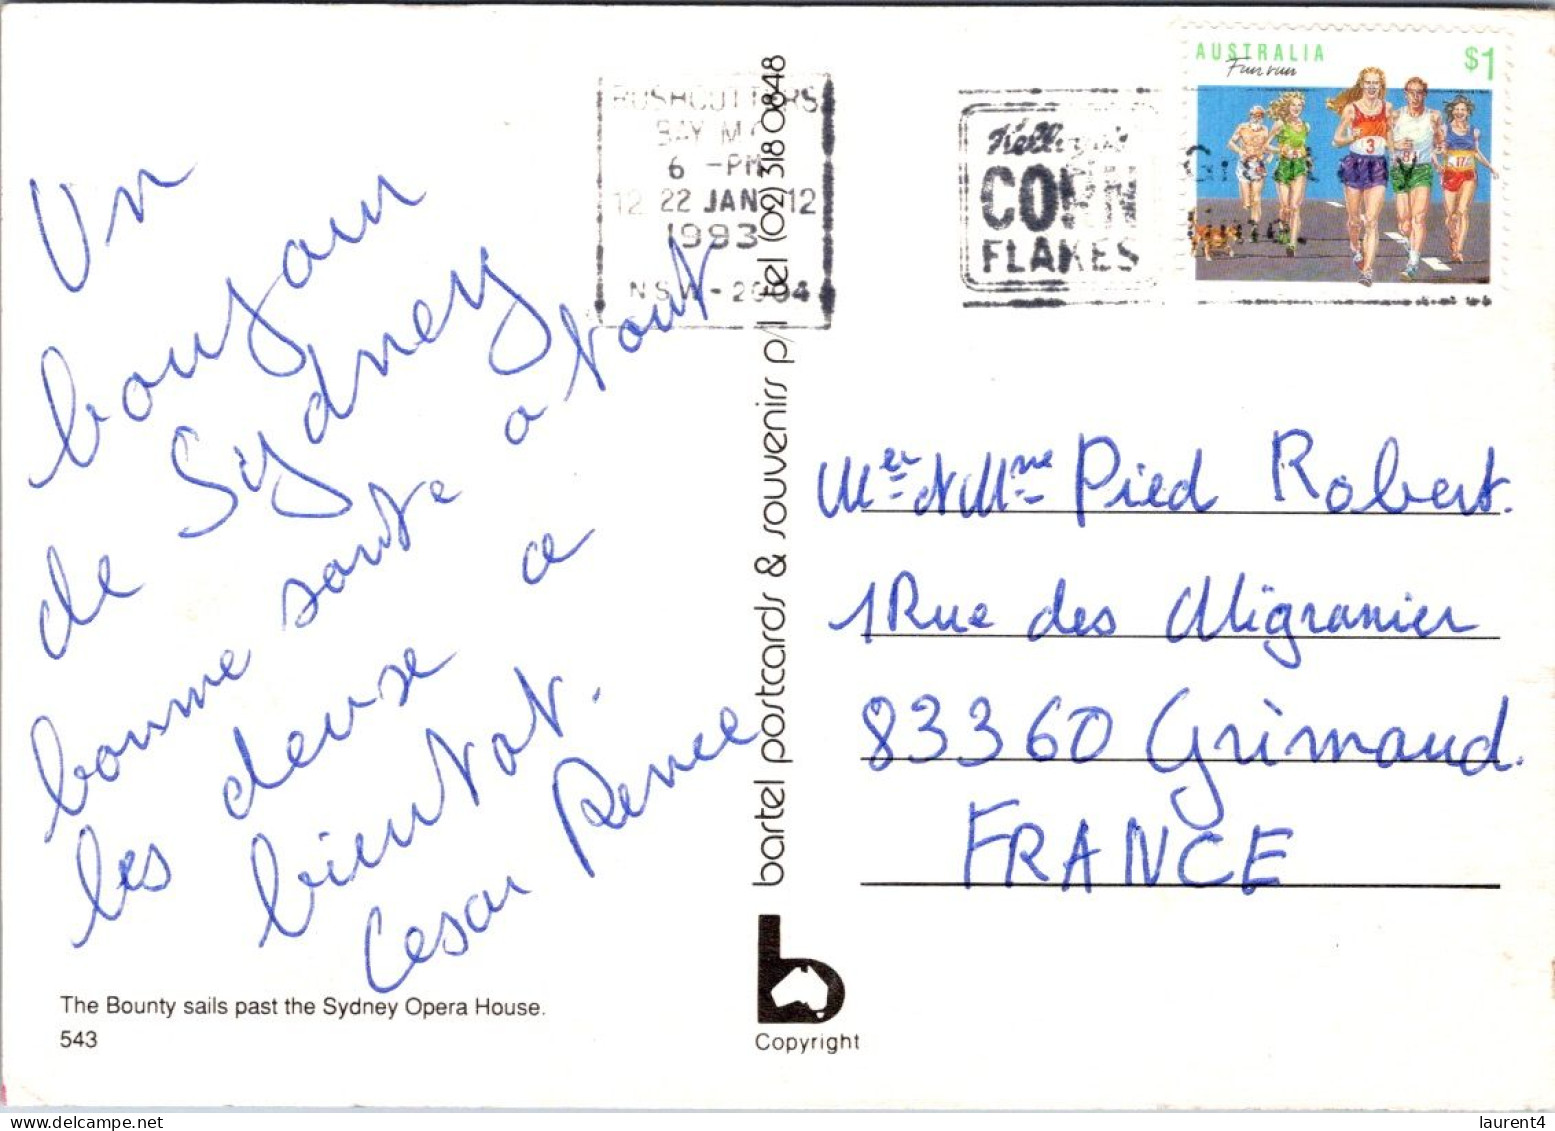 Un
bonjour
de Sydney
bonne sante a tout
les deuse a
bientot.
Cesar Renee
The Bounty sails past the Sydney Opera House.
543
bartel postcards & souvenirs p/l tel (02) 318 0848
Copyright
RUSHCUTTERS
BAY M.C.
6 -PM
12 22 JAN 12
1993
N.S.W - 2004
Kellogg's
CORN
FLAKES
AUSTRALIA
Fun run
$1
3
17
Mer et Mme Pied Robert.
1 Rue des Migranier
83360 Grimaud.
FRANCE
www.delcampe.net
laurent4